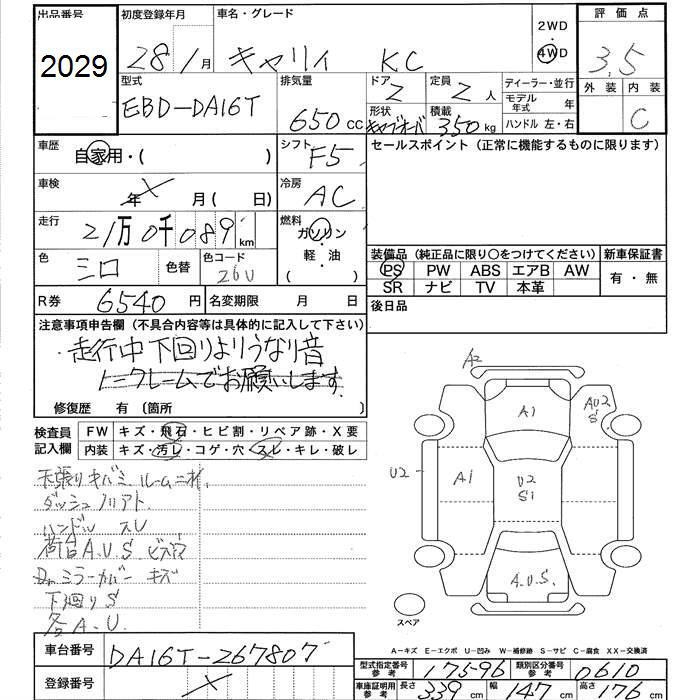 出品番号 初度登録年月 車名・グレード 2WD 評価点
2029 28年1月 キャリイ KC 4WD 3.5
型式 排気量 ドア 定員 ディーラー・並行 外装 内装
EBD-DA16T 650cc 2 2人 モデル年式 年 C
形状 積載 ハンドル 左・右
キャブオーバ 350kg
車歴 自家用・( ) シフト F5 セールスポイント (正常に機能するものに限ります)
車検 年 X 月( 日) 冷房 AC
走行 21万0千089km 燃料 ガソリン・軽・油 ( )
装備品 (純正品に限り○をつけてください) 新車保証書
色 シロ 色替 色コード 26U PS PW ABS エアB AW 有・無
SR ナビ TV 本革
R券 6540円 名変期限 月 日 後日品
注意事項申告欄 (不具合内容等は具体的に記入して下さい)
走行中下回りよりうなり音
修復歴 有 (箇所 )
検査員記入欄 FW キズ・飛石・ヒビ割・リペア跡・X要
内装 キズ・汚レ・コゲ・穴・スレ・キレ・破レ
天張りキバミ ルームニオイ
ダッシュノリアト
ハンドル スレ
荷台A.U.S ビス穴
Drミラーカバー キズ
下廻りS
各A.U.
A2
A1
AU2
S
U2
A1
U2
S1
A.U.S
スペア
A-キズ E-エクボ U-凹み W-補修跡 S-サビ C-腐食 XX-交換済
車台番号 DA16T-267807
登録番号 X
型式指定番号 参考 17596 類別区分番号 参考 0610
車庫証明用 参考 長さ 339cm 幅 147cm 高さ 176cm